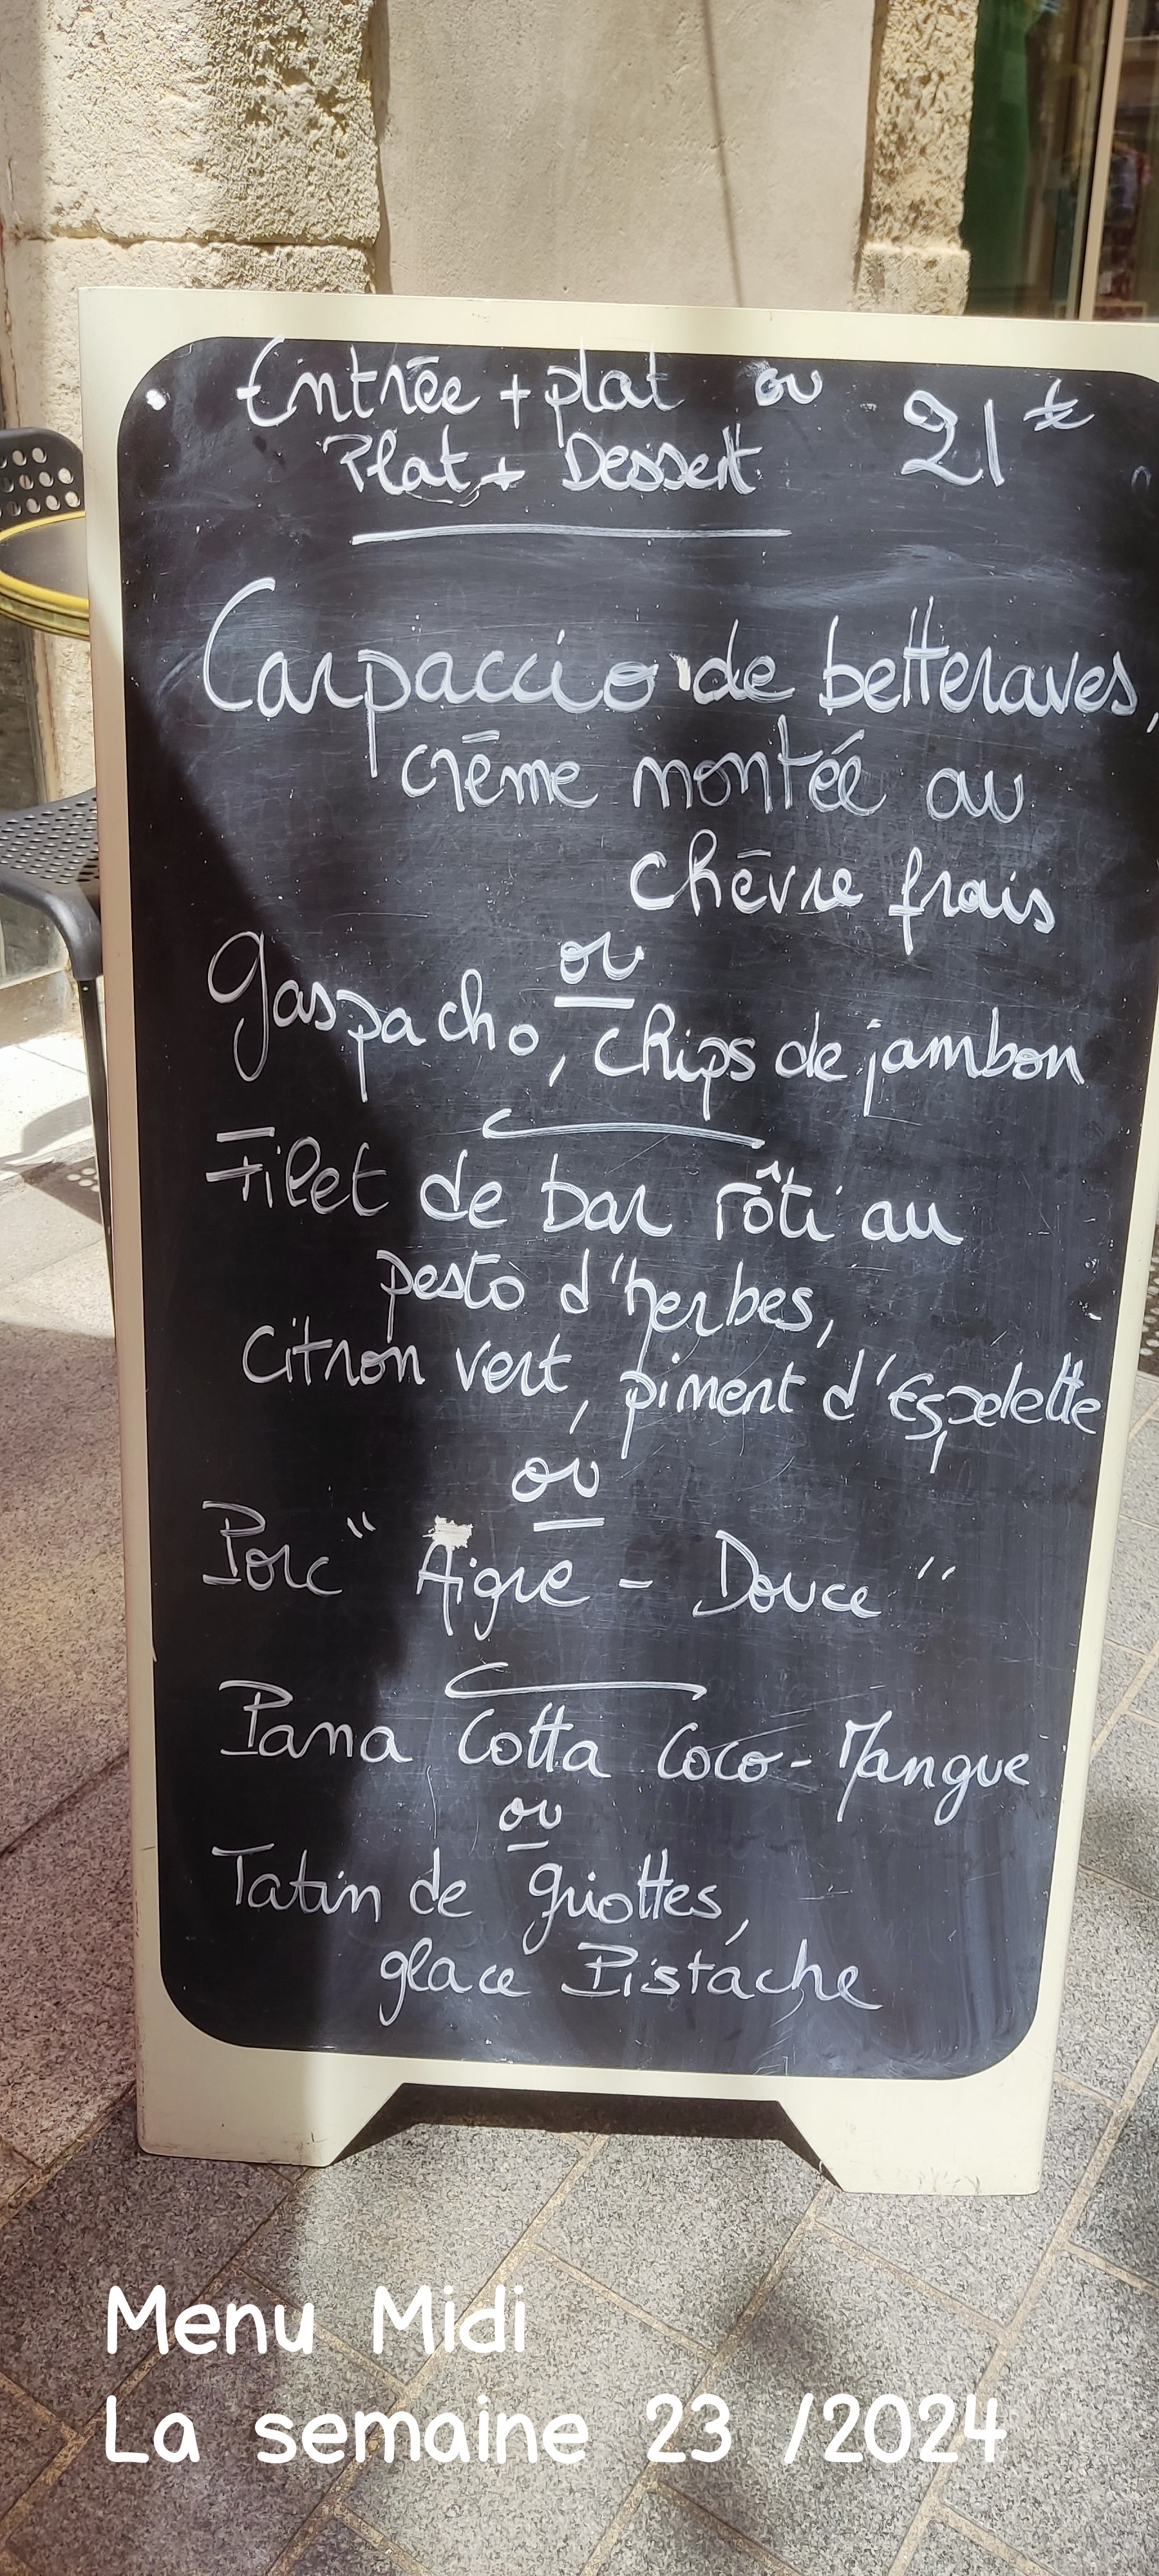 Entrée + plat ou 21 €
Plat + Dessert
Carpaccio de betteraves,
crème montée au
chèvre frais
ou
Gaspacho, chips de jambon
Filet de bar rôti au
pesto d'herbes,
Citron vert, piment d'Espelette
ou
Porc " Aigre - Douce "
Pana Cotta Coco-Mangue
ou
Tatin de griottes,
glace Pistache
Menu Midi
La semaine 23 /2024